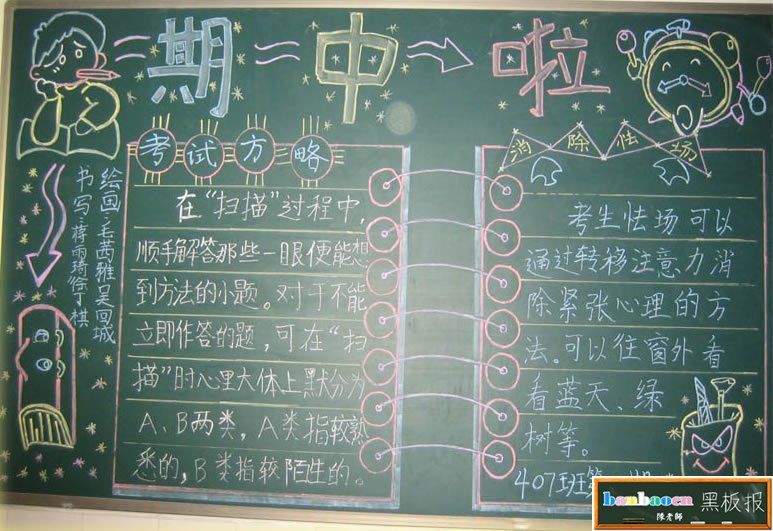 期中啦
考试方略
在“扫描”过程中，
顺手解答那些一眼便能想
到方法的小题。对于不能
立即作答的题，可在“扫
描”时心里大体上默分为
A、B两类，A类指较熟
悉的，B类指较陌生的。
消除怯场
考生怯场可以
通过转移注意力消
除紧张心理的方
法。可以往窗外看
看蓝天、绿
树等。
407班第
绘画：毛茜雅吴回城
书写：蒋雨琦徐丁棋
banbaocn 黑板报
陳老師